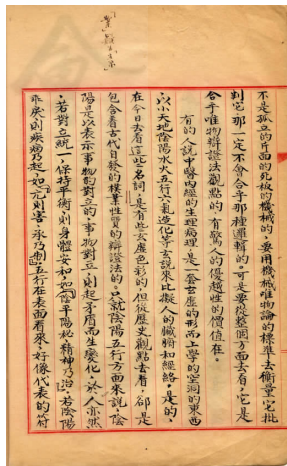 不是孤立的片面的死板的機械的,要用機械唯物論的標準去衡量它批
判它,那一定不會合乎那種邏輯的。可是要從整個方面去看,它是
合乎唯物辯證法觀點的,有驚人的優越性的價值在。
有的人說中醫內經的生理病理是一套玄虛的形而上學的空洞的東西
以小天地陰陽水火五行六氣造化等玄說來比擬人的臟腑和經絡。是的,
在今日去看這些名詞,是有些玄虛色彩的,但從歷史觀點去看,卻是
包含著古代自發的樸素性質的辯證法的。只就陰陽五行方面來說,陰
陽是以表示事物的對立的,事物對立,則起矛盾而生變化。於人亦然
,若對立統一,保持平衡,則身體安和,如「陰平陽秘精神乃治」,若陰陽
乖戾,則疾病乃起,如「亢則害,承乃制」五行在表面看來,好像代表的符